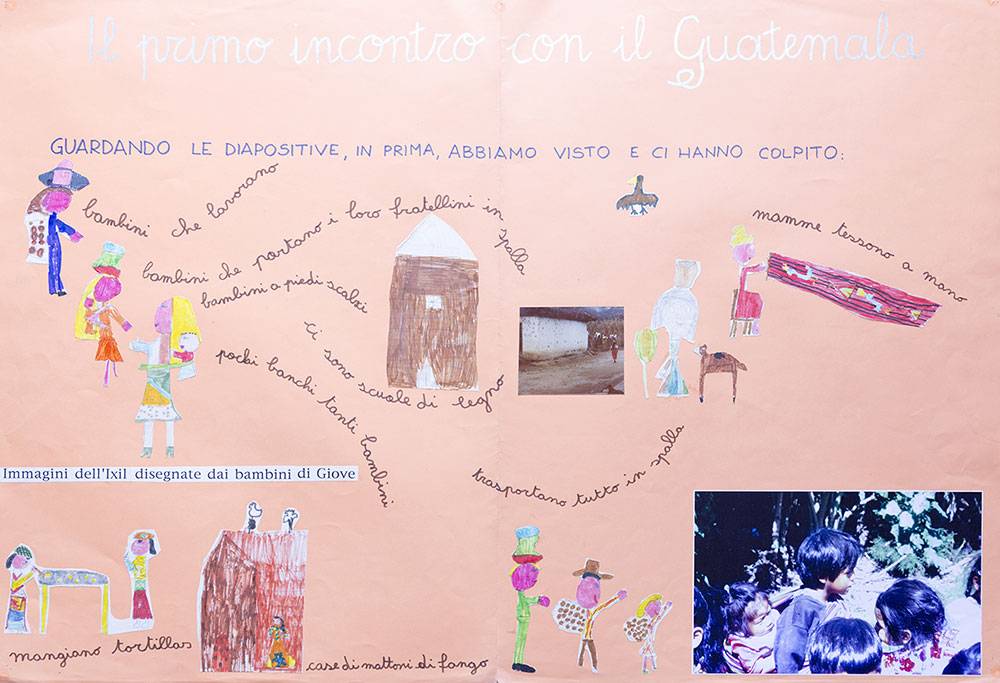 Il primo incontro con il Guatemala
GUARDANDO LE DIAPOSITIVE, IN PRIMA, ABBIAMO VISTO E CI HANNO COLPITO:
bambini che lavorano
bambini che portano i loro fratellini in spalla
bambini a piedi scalzi
ci sono scuole di legno
pochi banchi tanti bambini
mamme tessono a mano
trasportano tutto in spalla
Immagini dell'Ixil disegnate dai bambini di Giove
mangiano tortillas
case di mattoni di fango